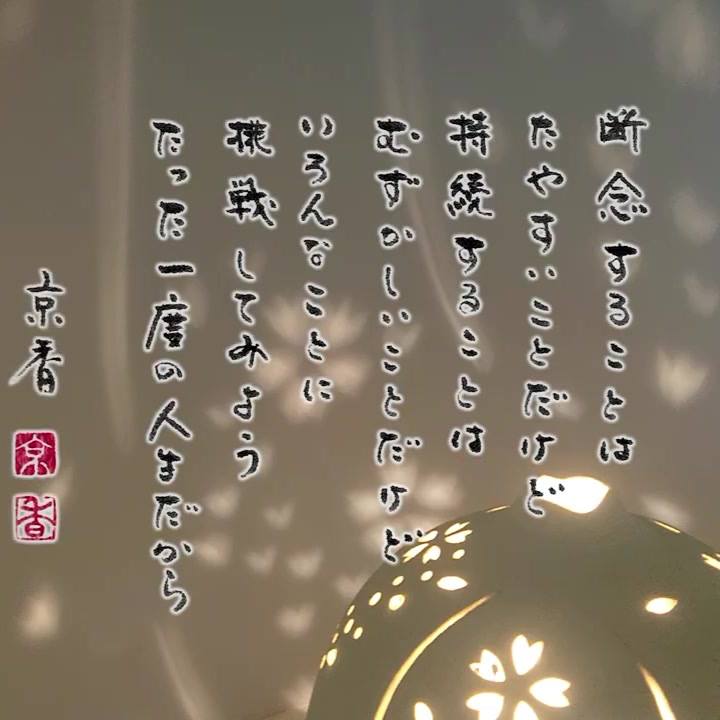 断念することは
たやすいことだけど
持続することは
むずかしいことだけど
いろんなことに
挑戦してみよう
たった一度の人生だから
京香
京
香